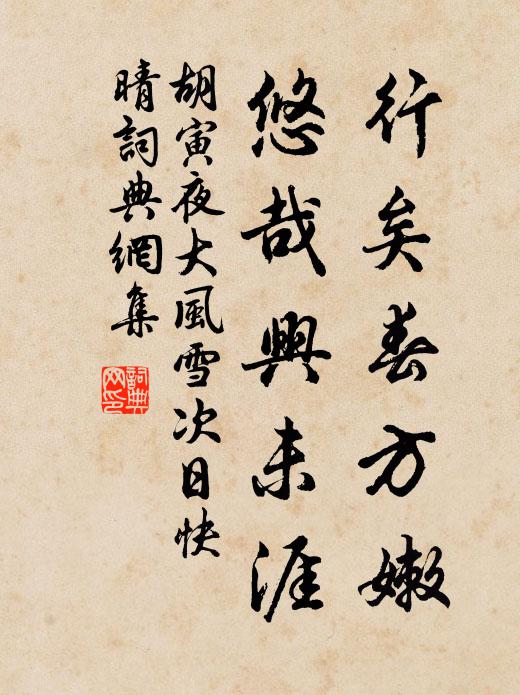 行矣春方嫩
悠哉興未涯
胡寅夜大風雪次日快
晴詞典網集
詞典
网印